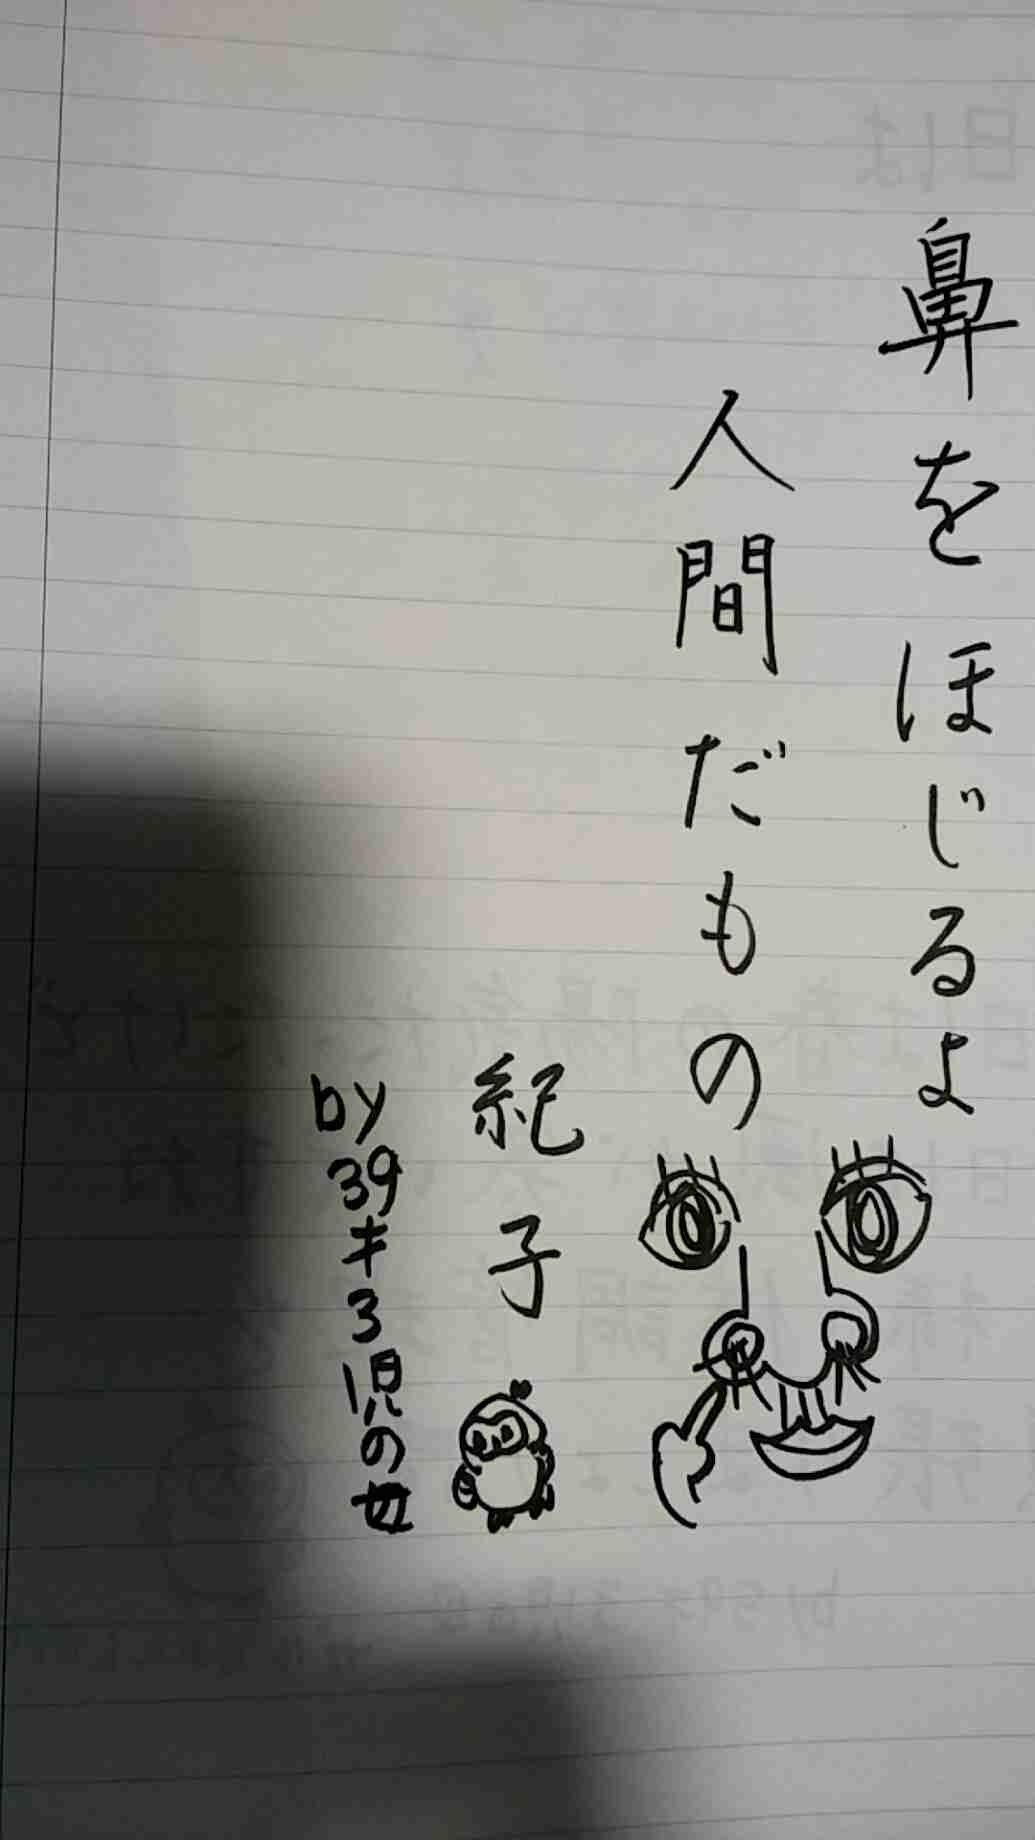 鼻をほじるよ
人間だもの
紀子
by39才3児の母